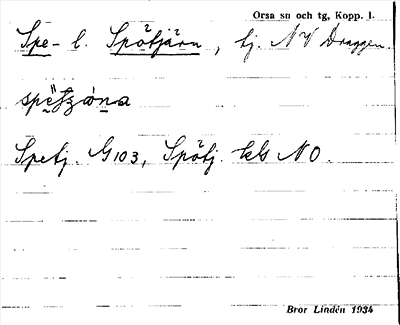 Orsa sn och tg, Kopp. l.
Spe- l. Spötjärn, tj. NV Draggen.
Spetj. G103, Spötj. kls NO.
Bror Lindén 1934